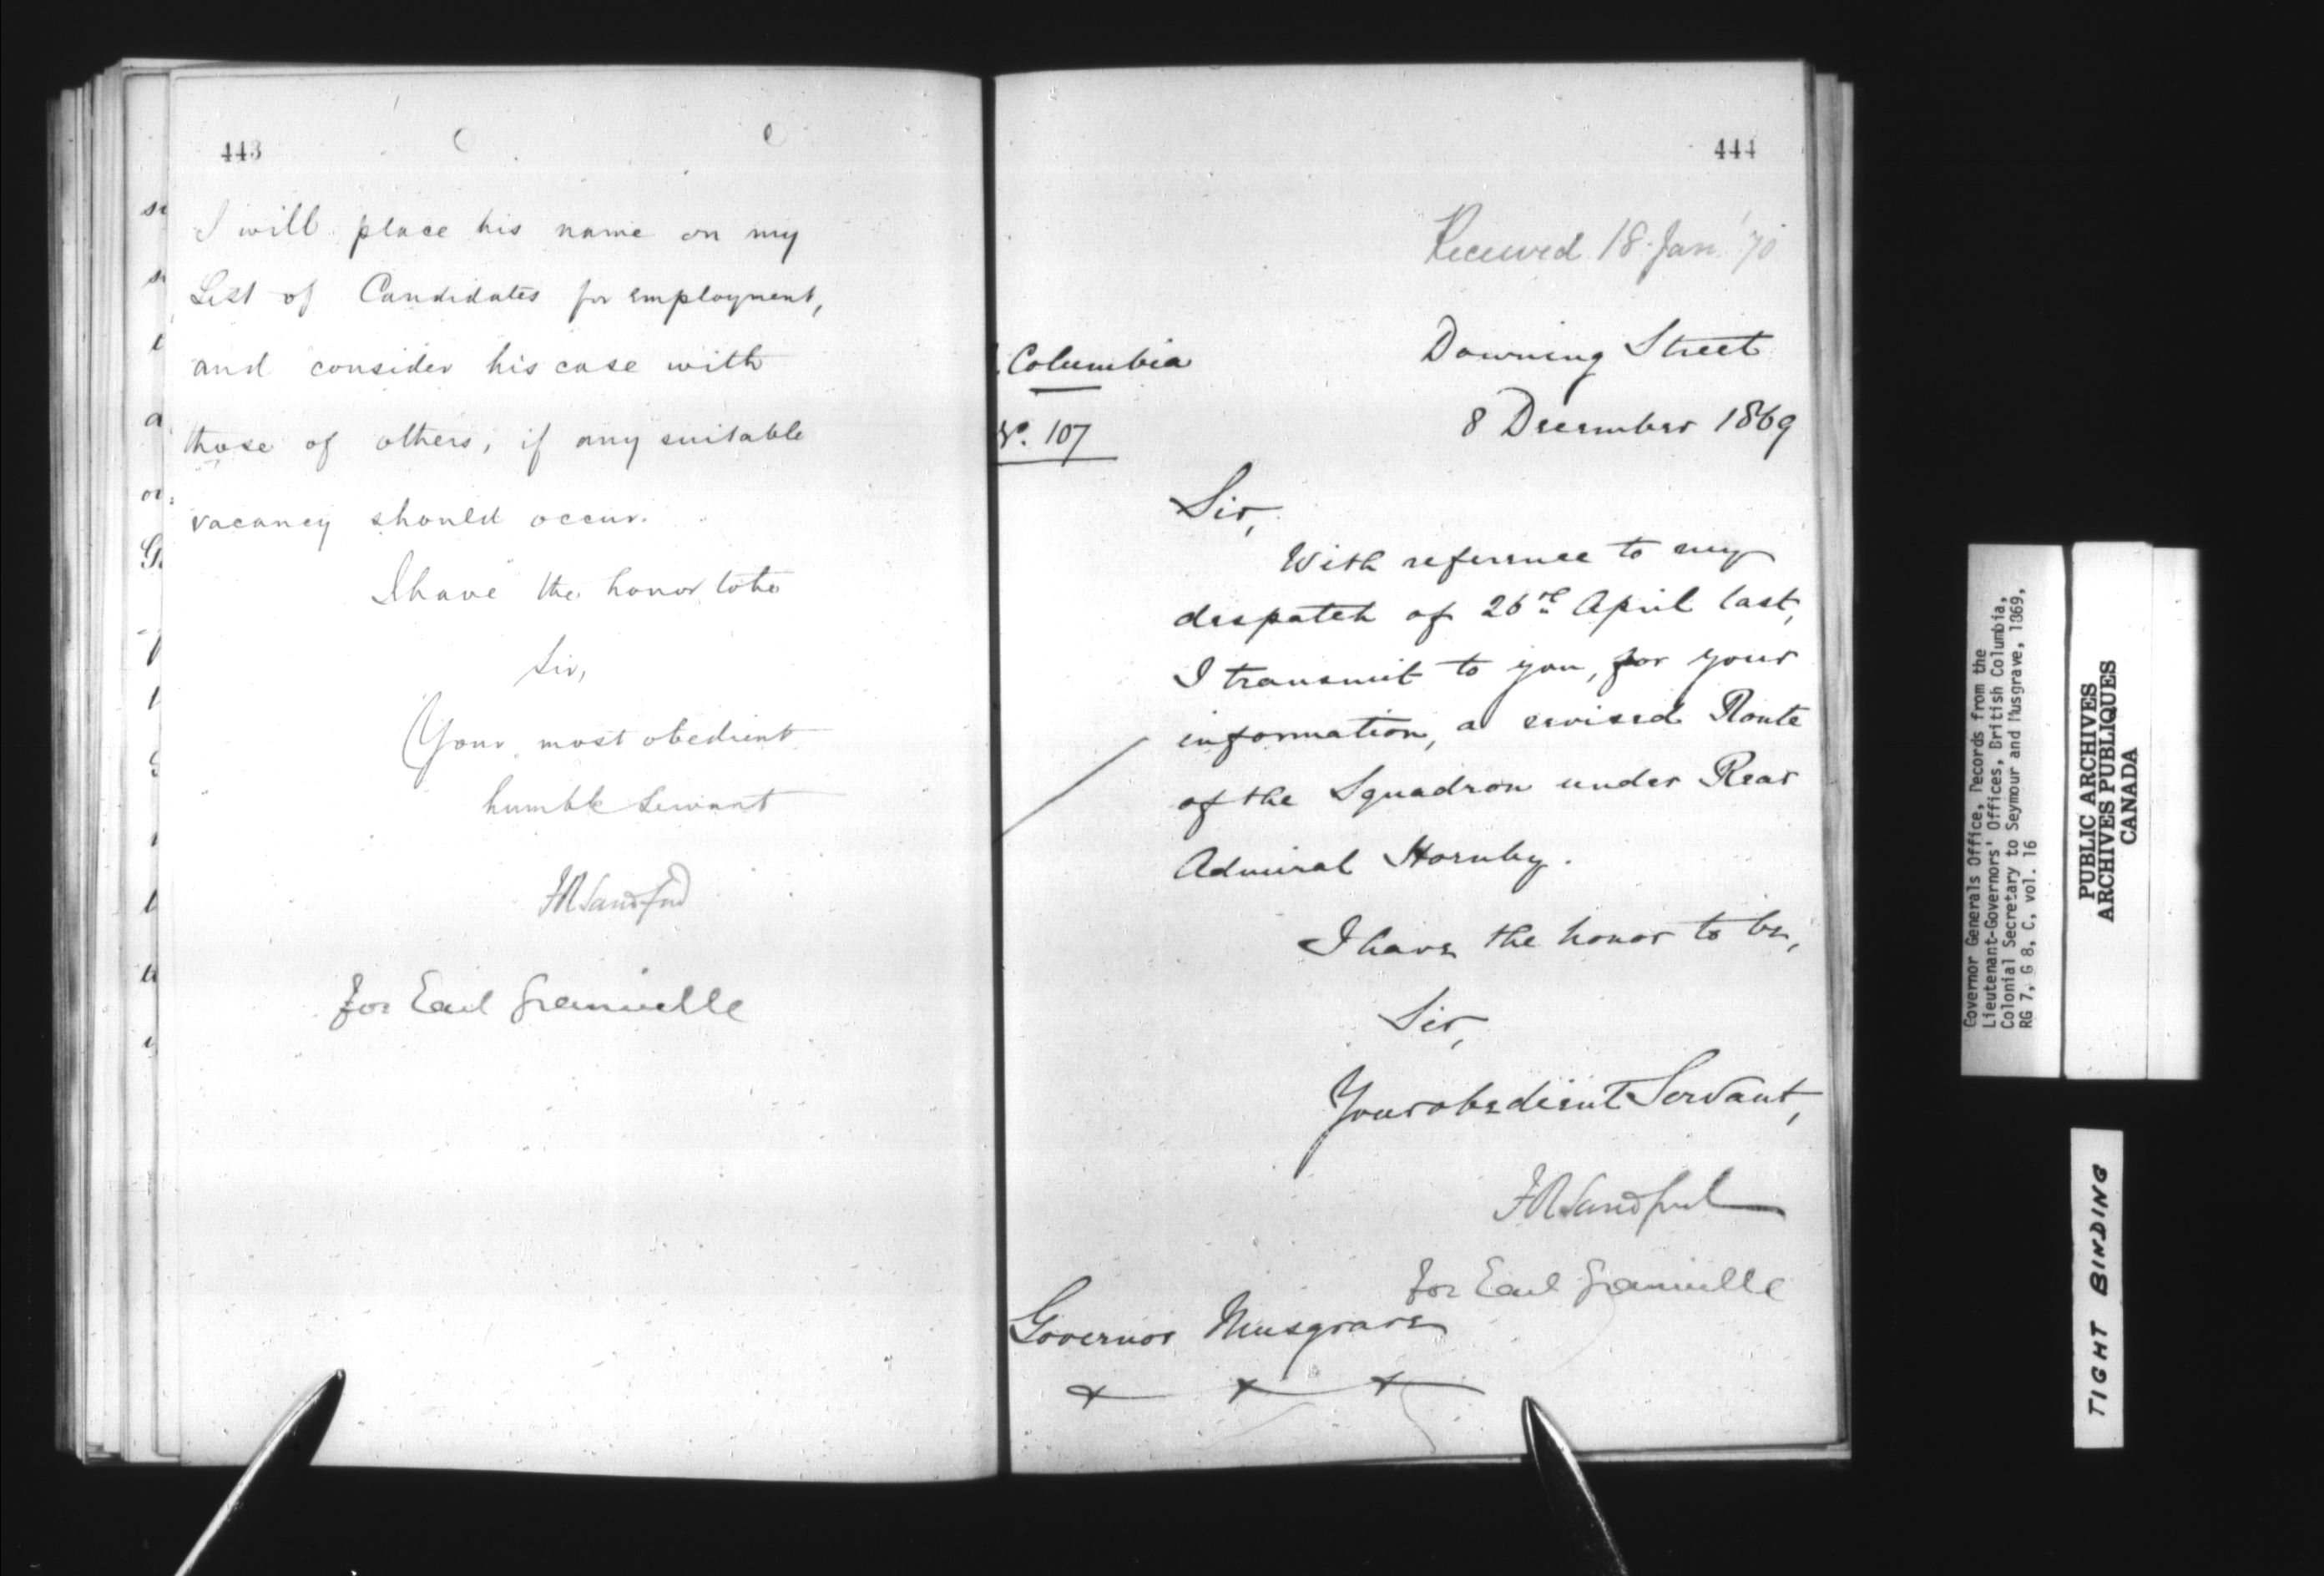 443
I will place his name on my
List of Candidates for employment,
and consider his case with
those of others, if any suitable
vacancy should occur.
I have the honor to be
Sir,
Your most obedient
humble Servant
F R Sandford
for Earl Granville
444
Received 18 Jan '70
. Columbia
Downing Street
8 December 1869
No. 107
Sir,
With reference to my
despatch of 26th April last,
I transmit to you, for your
information, a revised Route
of the Squadron under Rear
Admiral Hornby.
I have the honor to be,
Sir,
Your obedient Servant,
F R Sandford
for Earl Granville
Governor Musgrave
Governor Generals Office, Records from the
Lieutenant-Governors' Offices, British Columbia,
Colonial Secretary to Seymour and Musgrave, 1869,
RG 7, G 8, C, vol. 16
PUBLIC ARCHIVES
ARCHIVES PUBLIQUES
CANADA
TIGHT BINDING